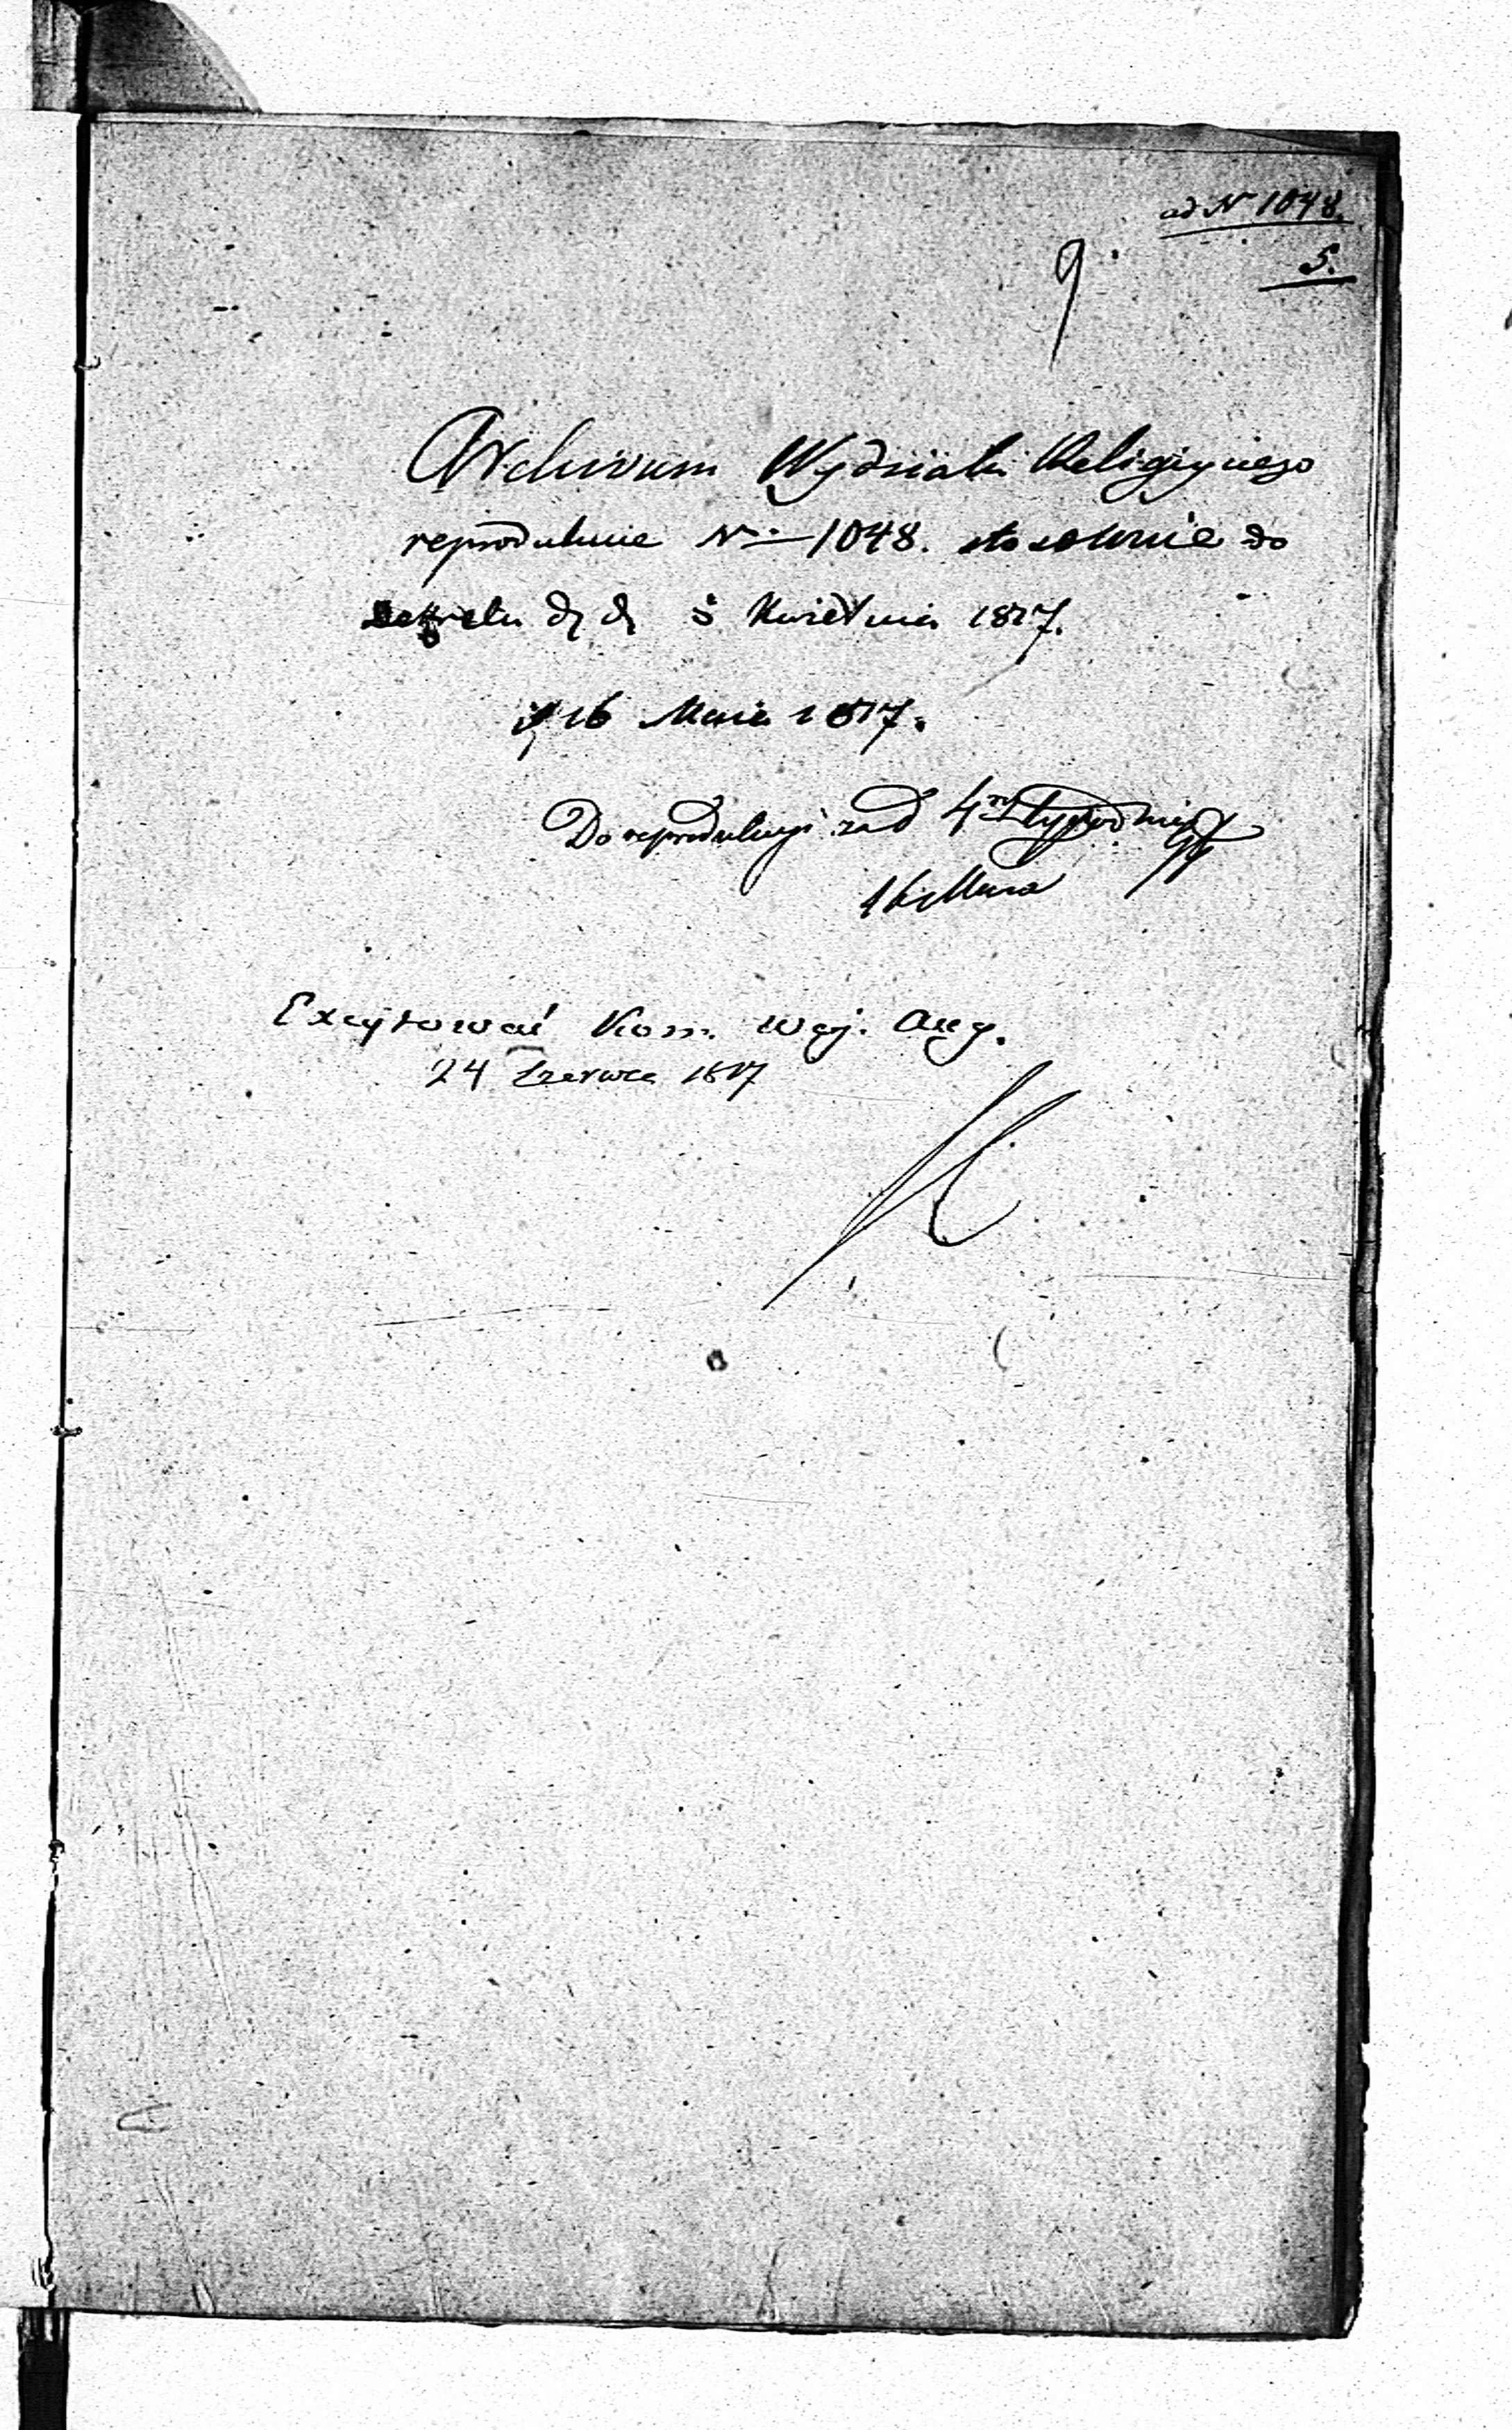 ad N 1048.
9.
5.
Archivum Wydziału Religiynego
reprodukuie No 1048. stosownie do
dekretu d. d. 5 Kwietnia 1817.
d. 16 Maia 1817.
Do reprodukcyi za 4ry tygodni
16 Maia
Excytować Kom. Woj. Aug.
24 Czerwca 1817